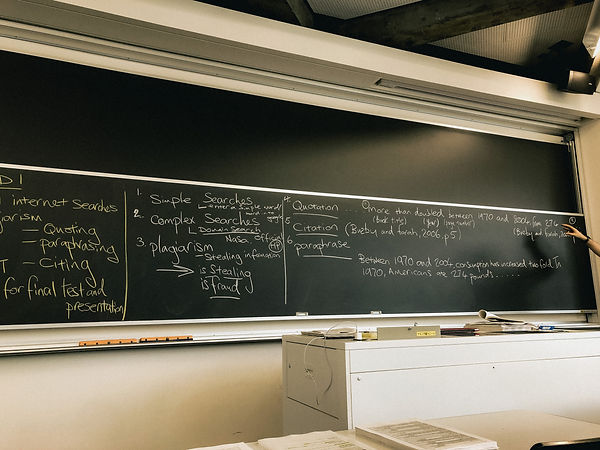 D1
internet searches
giarism
— Quoting
— paraphrasing
— Citing
T
for final test and
presentation
1. Simple Searches
enter a single word
2. Complex Searches
Domain Search
Nasa,
3. plagiarism
— Stealing information
is Stealing
is fraud
4. Quotation ... more than doubled between 1970 and from 274
(book title) (Year)
5. Citation (Bixby and 2006, p.5)
(Bixby and
6. paraphrase
Between 1970 and 2004, consumption has increased two fold. In
1970, Americans are 274 pounds ......